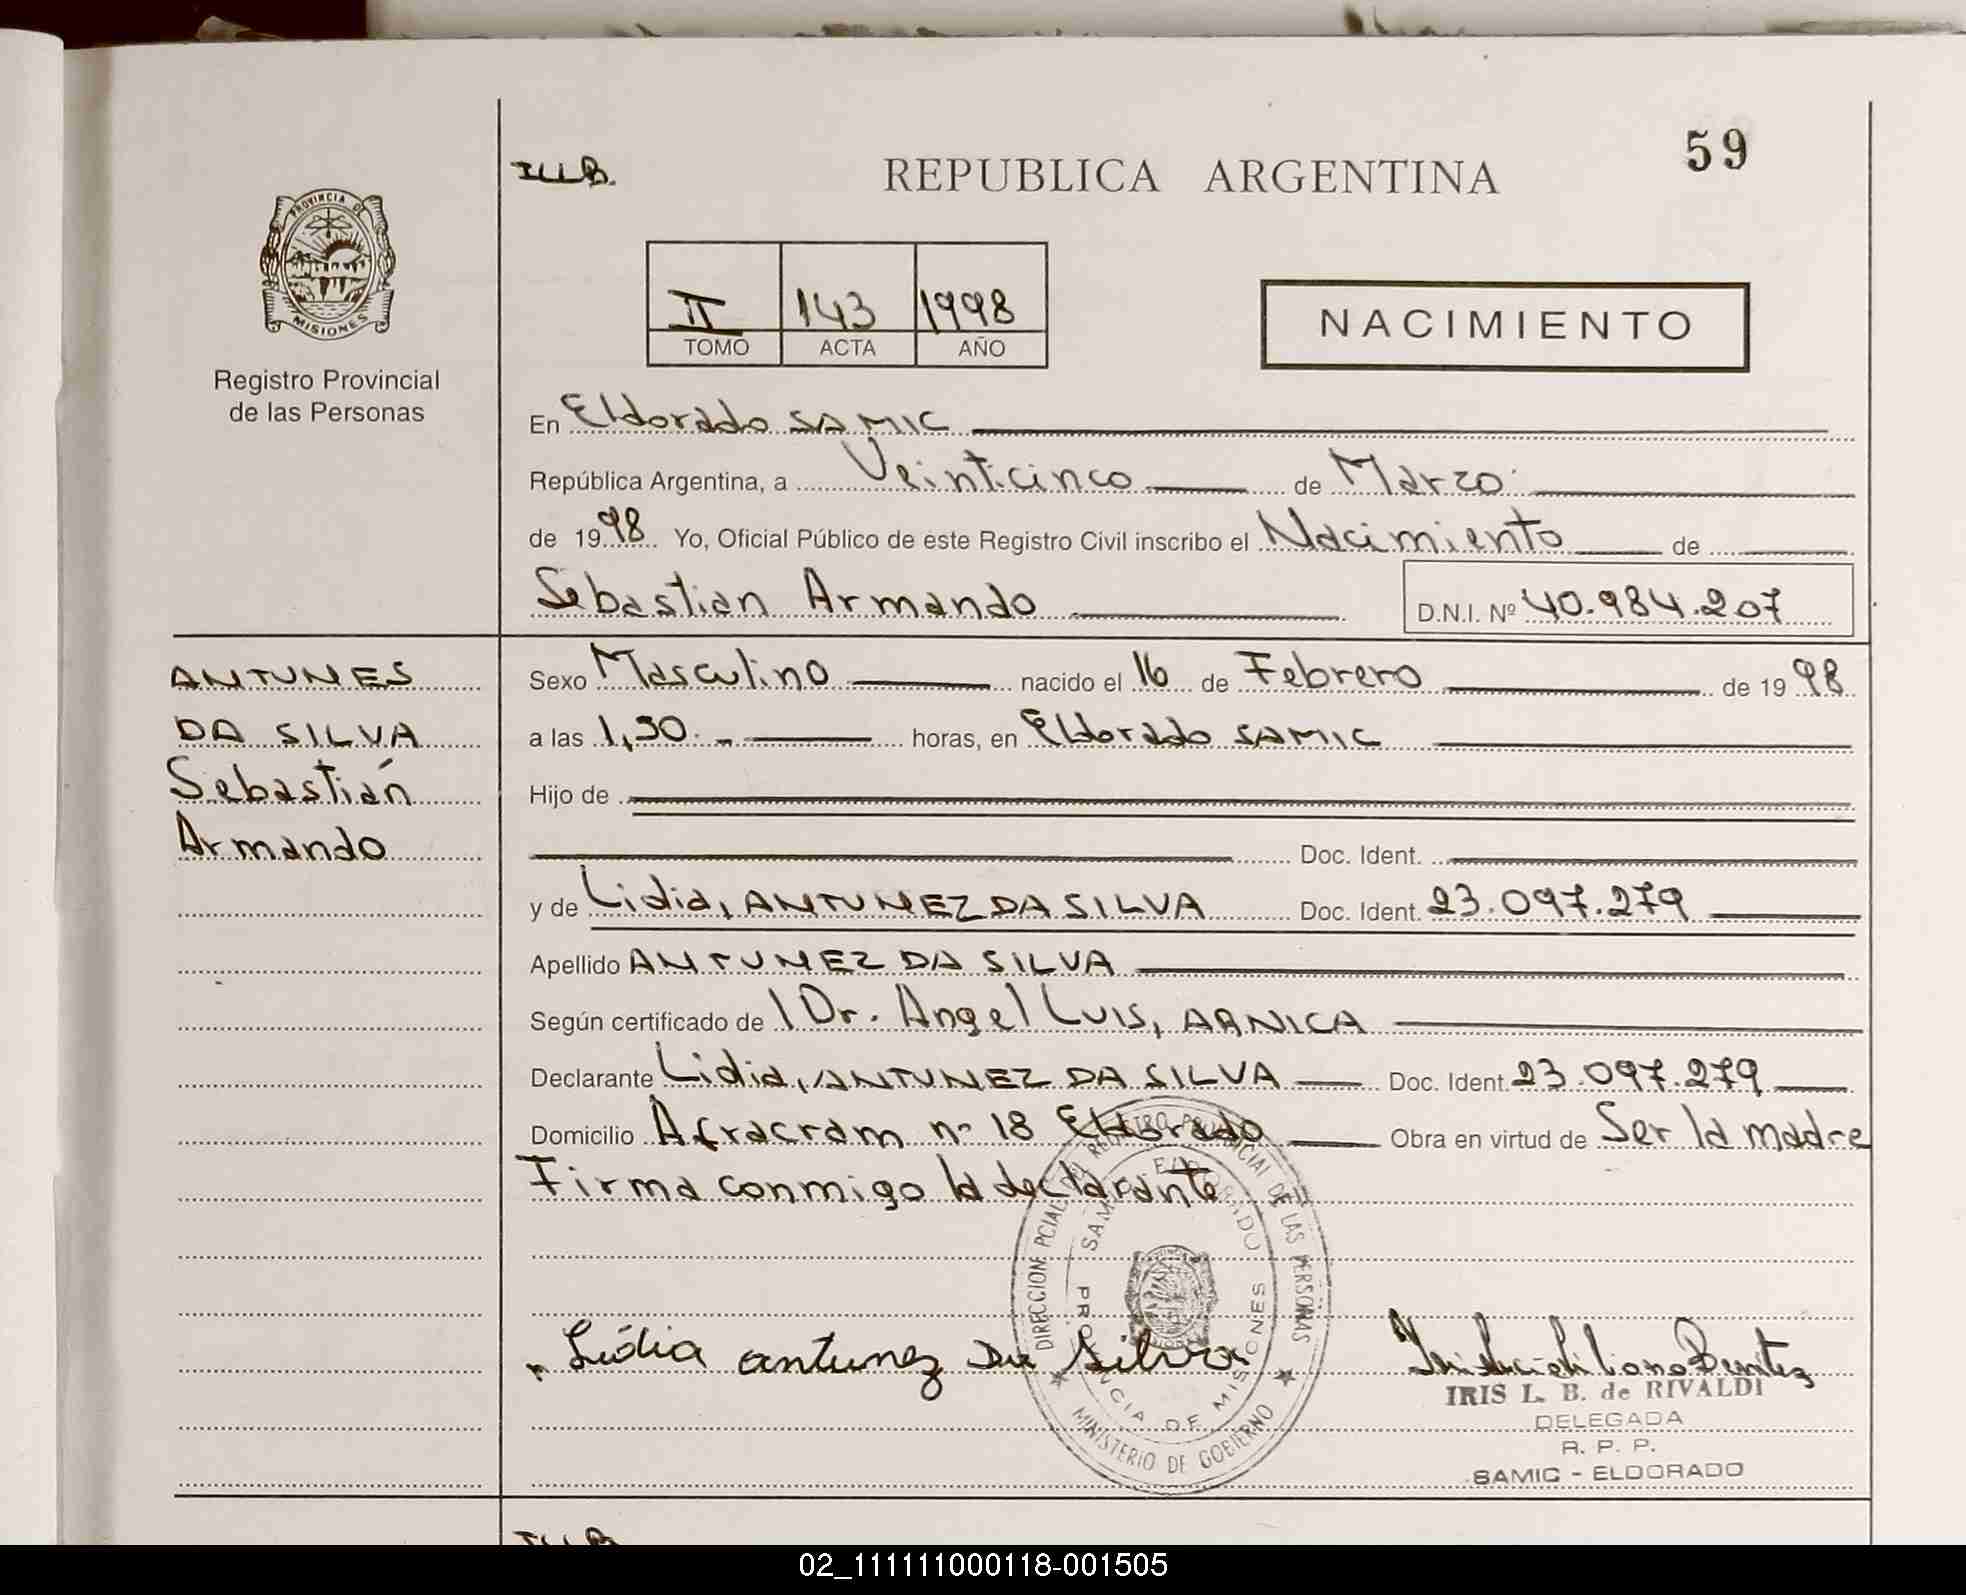 59
REPUBLICA ARGENTINA
PROVINCIA DE
MISIONES
Registro Provincial
de las Personas
II 143 1998
TOMO ACTA AÑO
NACIMIENTO
En Eldorado SAMIC
República Argentina, a Veinticinco de Marzo
de 1998 Yo, Oficial Público de este Registro Civil inscribo el Nacimiento de
Sebastian Armando D.N.I. Nº 40.984.207
ANTUNES
DA SILVA
Sebastián
Armando
Sexo Masculino nacido el 16 de Febrero de 1998
a las 1,30 horas, en Eldorado SAMIC
Hijo de
Doc. Ident.
y de Lidia, ANTUNEZ DA SILVA Doc. Ident. 23.097.279
Apellido ANTUNEZ DA SILVA
Según certificado de l Dr. Angel Luis, ARNICA
Declarante Lidia, ANTUNEZ DA SILVA Doc. Ident. 23.097.279
Domicilio nº 18 Eldorado Obra en virtud de Ser la madre
Firma conmigo la declarante
DIRECCION PCIAL DEL REGISTRO PROVINCIAL DE LAS PERSONAS
SAMIC ELDORADO
PROVINCIA DE MISIONES
MINISTERIO DE GOBIERNO
Lidia antunez Da Silva
IRIS L. B. de RIVALDI
DELEGADA
R. P. P.
SAMIC - ELDORADO
02_111111000118-001505